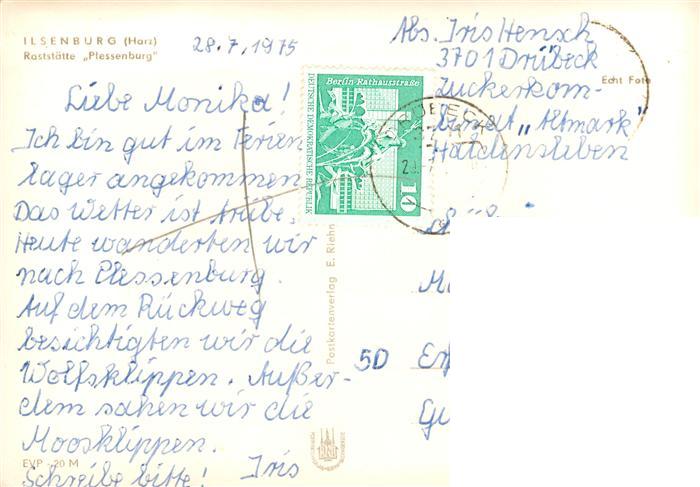 ILSENBURG (Harz)
Raststätte „Plessenburg"
28.7.1975
Liebe Monika!
Ich bin gut im Ferien
lager angekommen
Das Wetter ist trübe.
Heute wanderten wir
nach Plessenburg.
Auf dem Rückweg
besichtigten wir die
Wolfsklippen. Außer-
dem sahen wir die
Moosklippen.
Schreibe bitte! Iris
EVP -20 M
Abs. Iris Hensch
3701 Drübeck
Zuckerkom-
binat „Altmark"
Haldensleben
Echt Foto
Berlin-Rathausstraße
DEUTSCHE DEMOKRATISCHE REPUBLIK
10
Postkartenverlag E. Riehn
50